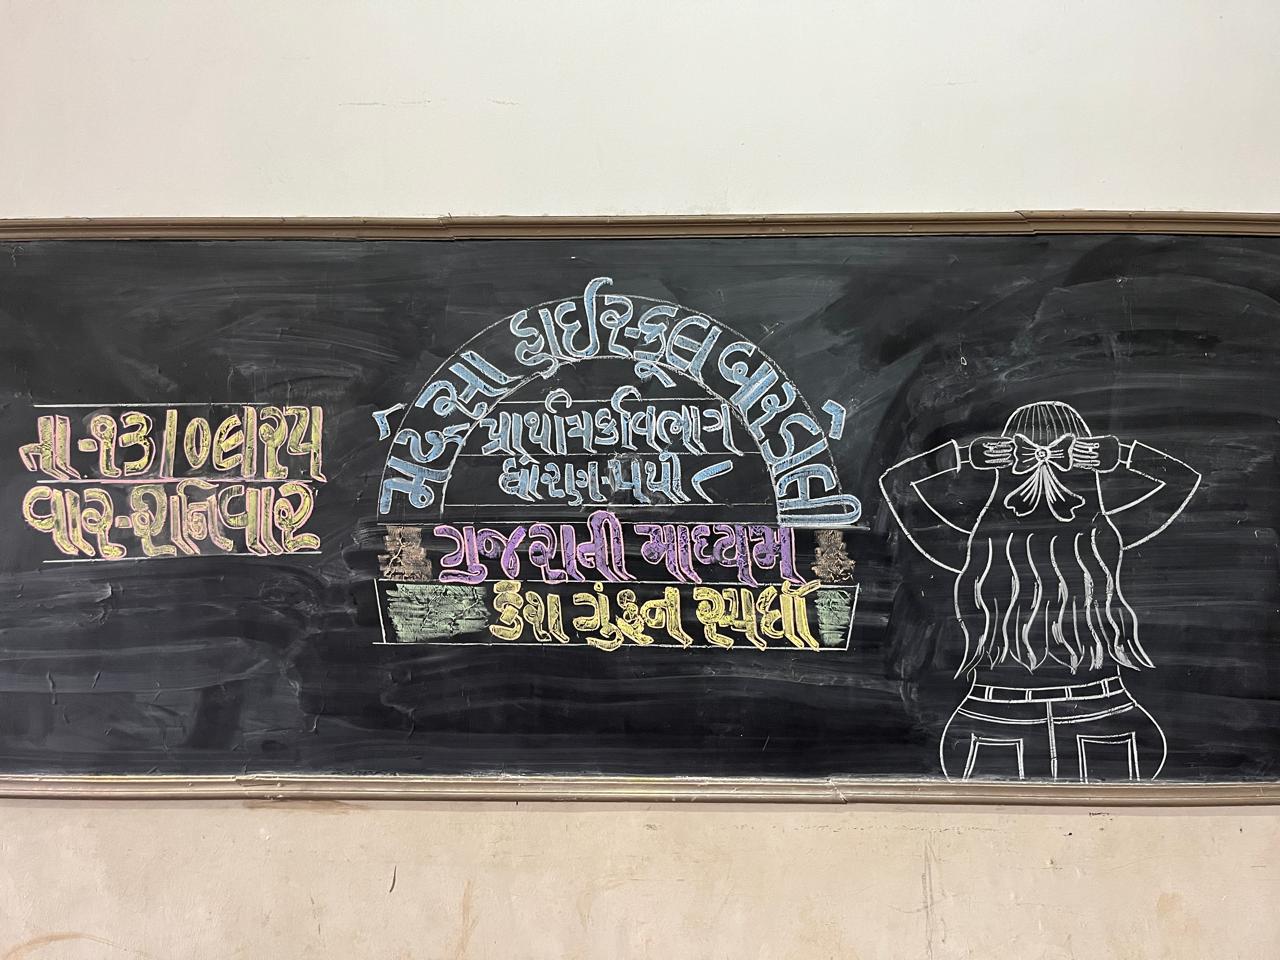 તા-૧૩/૦૯/૨૫
વાર-શનિવાર
મદ્રેસા હાઈસ્કૂલ બારડોલી
પ્રાથમિક વિભાગ
ધોરણ-૫થી ૮
ગુજરાતી માધ્યમ
કેશ ગુંફન સ્પર્ધા